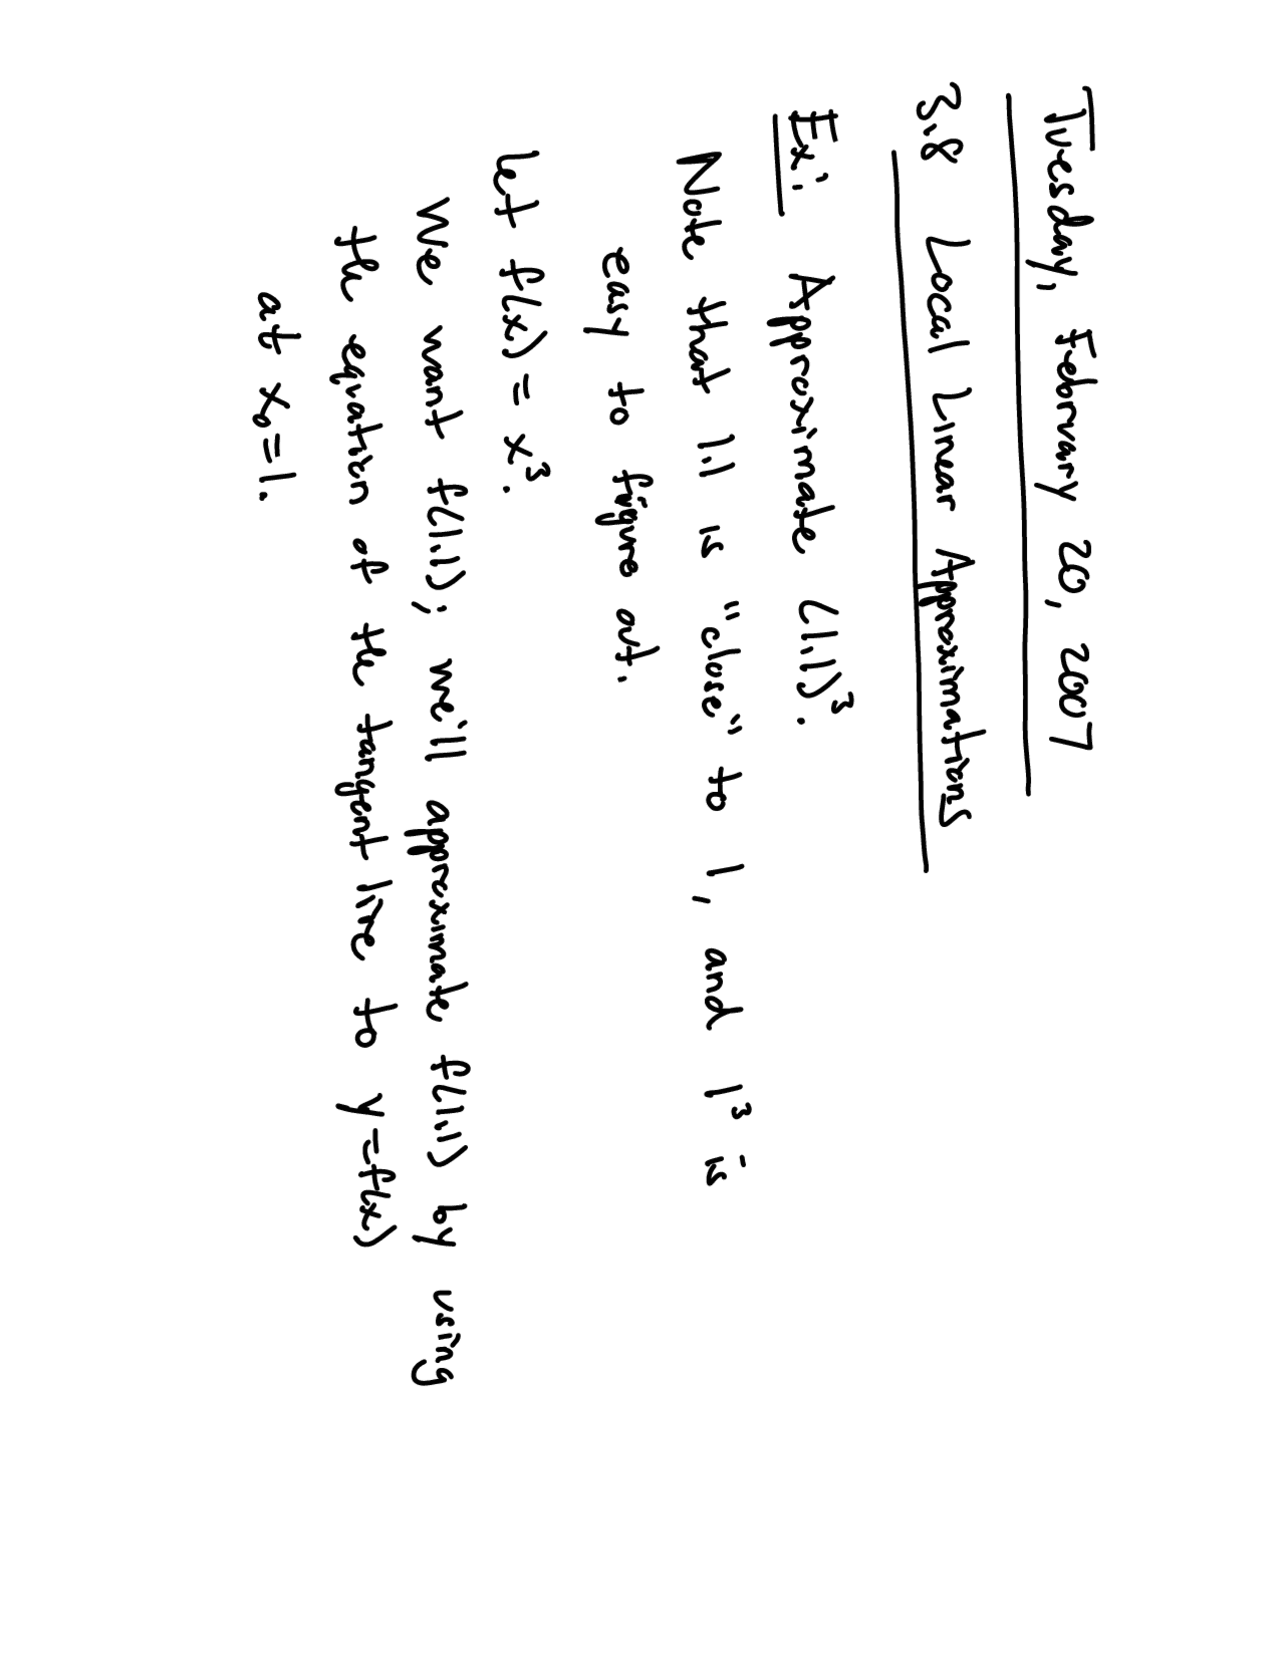 Tuesday, February 20, 2007
3.8 Local Linear Approximations
Ex: Approximate (1.1)³.
Note that 1.1 is "close" to 1, and 1³ is
easy to figure out.
Let f(x) = x³.
We want f(1.1); we'll approximate f(1.1) by using
the equation of the tangent line to y=f(x)
at x₀=1.